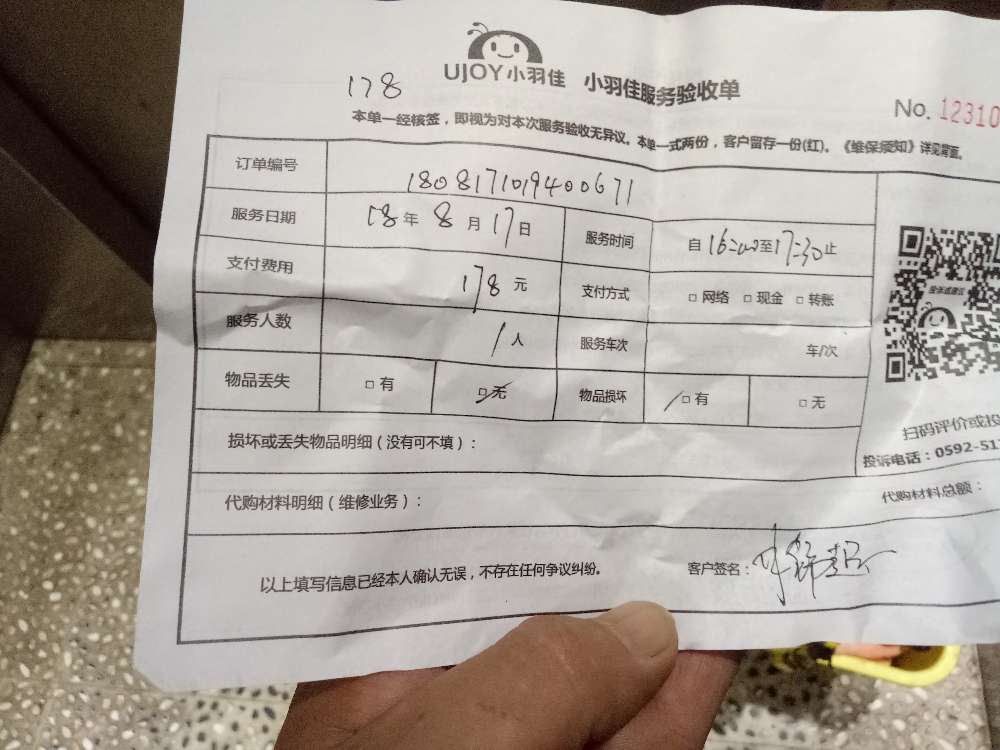 UJOY小羽佳 小羽佳服务验收单
178
No. 12310
本单一经核签，即视为对本次服务验收无异议。本单一式两份，客户留存一份(红)。《维保须知》详见背面。
订单编号 1808171019400671
服务日期 18年8月17日 服务时间 自16:00至17:30止
支付费用 178元 支付方式 □网络 □现金 □转账
服务人数 1人 服务车次 车/次
物品丢失 □有 □无 物品损坏 □有 □无
投诉或建议
扫码评价或投
投诉电话：0592-51
损坏或丢失物品明细（没有可不填）：
代购材料明细（维修业务）： 代购材料总额：
以上填写信息已经本人确认无误，不存在任何争议纠纷。 客户签名：